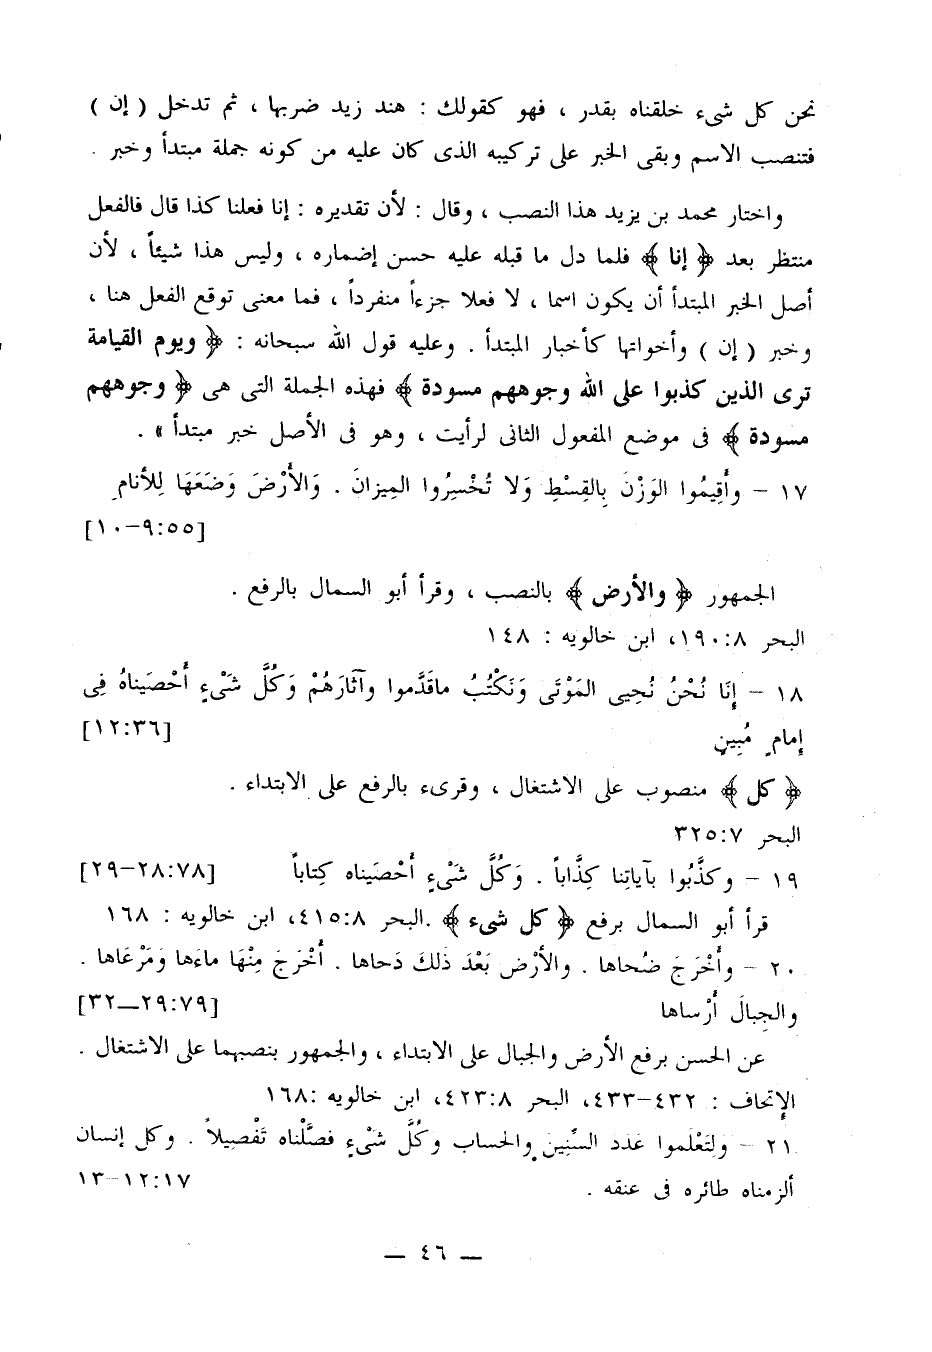 نحن كل شىء خلقناه بقدر ، فهو كقولك : هند زيد ضربها ، ثم تدخل ( إن )
فتنصب الاسم وبقى الخبر على تركيبه الذى كان عليه من كونه جملة مبتدأ وخبر .
واختار محمد بن يزيد هذا النصب ، وقال : لأن تقديره : إنا فعلنا كذا قال فالفعل
منتظر بعد ﴿ إنا ﴾ فلما دل ما قبله عليه حسن إضماره ، وليس هذا شيئاً ، لأن
أصل الخبر المبتدأ أن يكون اسما ، لا فعلا جزءاً منفرداً ، فما معنى توقع الفعل هنا ،
وخبر ( إن ) وأخواتها كأخبار المبتدأ . وعليه قول الله سبحانه : ﴿ ويوم القيامة
ترى الذين كذبوا على الله وجوههم مسودة ﴾ فهذه الجملة التى هى ﴿ وجوههم
مسودة ﴾ فى موضع المفعول الثانى لرأيت ، وهو فى الأصل خبر مبتدأ » .
١٧ – وأَقِيمُوا الوَزْنَ بِالقِسْطِ وَلا تُخْسِرُوا المِيزانَ . وَالأَرْضَ وَضَعَهَا لِلأنامِ
[٥٥:٩–١٠]
الجمهور ﴿ والأرض ﴾ بالنصب ، وقرأ أبو السمال بالرفع .
البحر ١٩٠:٨، ابن خالويه : ١٤٨
١٨ – إِنَا نُحْنُ نُحِيى المَوْتَى وَنَكْتُبُ ماقَدَّموا وآثارَهُمْ وَكُلَّ شَىْءٍ أَحْصَيناهُ فِى
إِمامٍ مُبِينٍ [١٢:٣٦]
﴿ كل ﴾ منصوب على الاشتغال ، وقرىء بالرفع على الابتداء .
البحر ٣٢٥:٧
١٩ – وكذَّبُوا بآياتِنا كِذَّاباً . وَكُلَّ شَىْءٍ أَحْصَيناه كِتاباً [٢٨:٧٨–٢٩]
قرأ أبو السمال برفع ﴿ كل شىء ﴾ .البحر ٤١٥:٨، ابن خالويه : ١٦٨
٢٠ – وأَخْرَجَ ضُحاها . والأَرْض بَعْدَ ذَلكَ دَحاها . أَخْرَجَ مِنْهَا ماءَها وَمَرْعَاها .
والجِبالَ أَرْساها [٢٩:٧٩—٣٢]
عن الحسن برفع الأرض والجبال على الابتداء ، والجمهور بنصبهما على الاشتغال .
الإتحاف : ٤٣٢–٤٣٣، البحر ٤٢٣:٨، ابن خالويه :١٦٨
٢١ – ولِتَعْلَموا عَدَد السِّنِينَ والحساب وكُلَّ شَىْءٍ فصَّلْناه تَفْصِيلاً . وكل إنسان
ألزمناه طائره فى عنقه . ١٢:١٧–١٣
— ٤٦ —